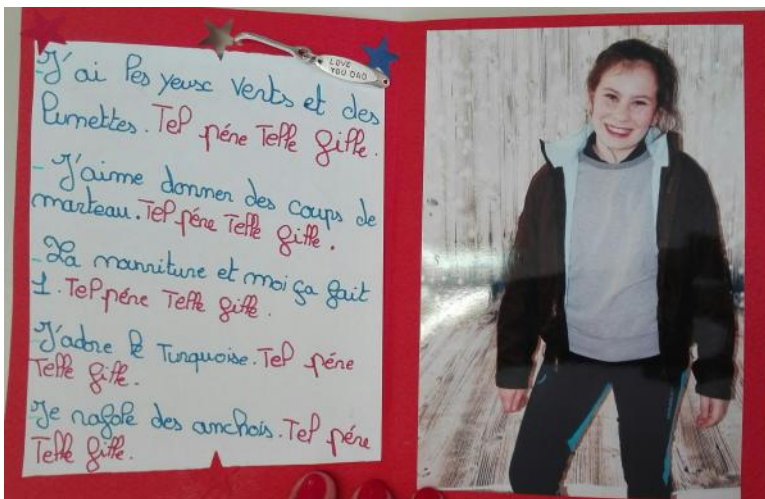 LOVE
YOU DAD
- J'ai les yeux verts et des
lunettes. Tel père Telle fille.
- J'aime donner des coups de
marteau. Tel père Telle fille.
- La nourriture et moi ça fait
1. Tel père Telle fille.
- J'adore le Turquoise. Tel père
Telle fille.
- Je rafole des anchois. Tel père
Telle fille.